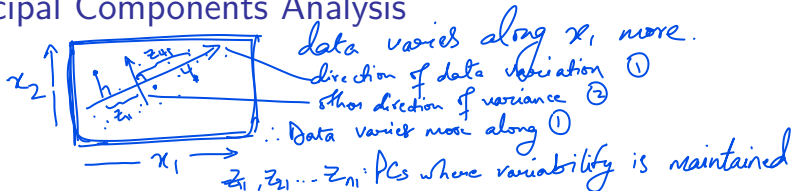 cipal Components Analysis
data varies along x₁ more.
direction of data variation ①
other direction of variance ②
∴ Data varies more along ①
x₂
x₁
z₁₁, z₂₁ ... zₙ₁: PCs where variability is maintained